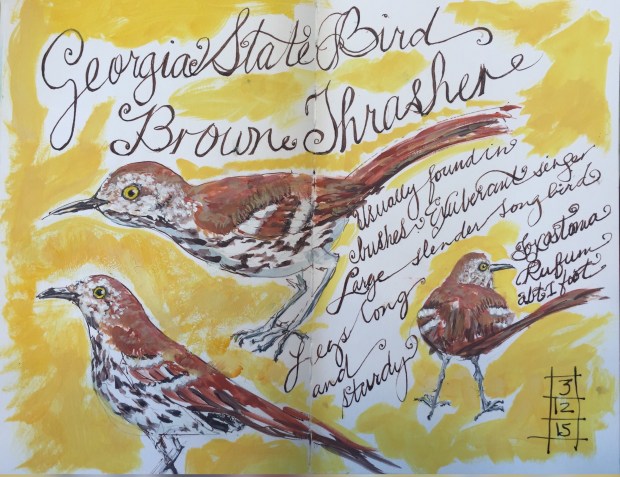 Georgia State Bird
Brown Thrasher
Usually found in
bushes Exuberant singer
Large slender songbird
Legs long
and
sturdy
Rufum
abt. 1 foot
3
12
15